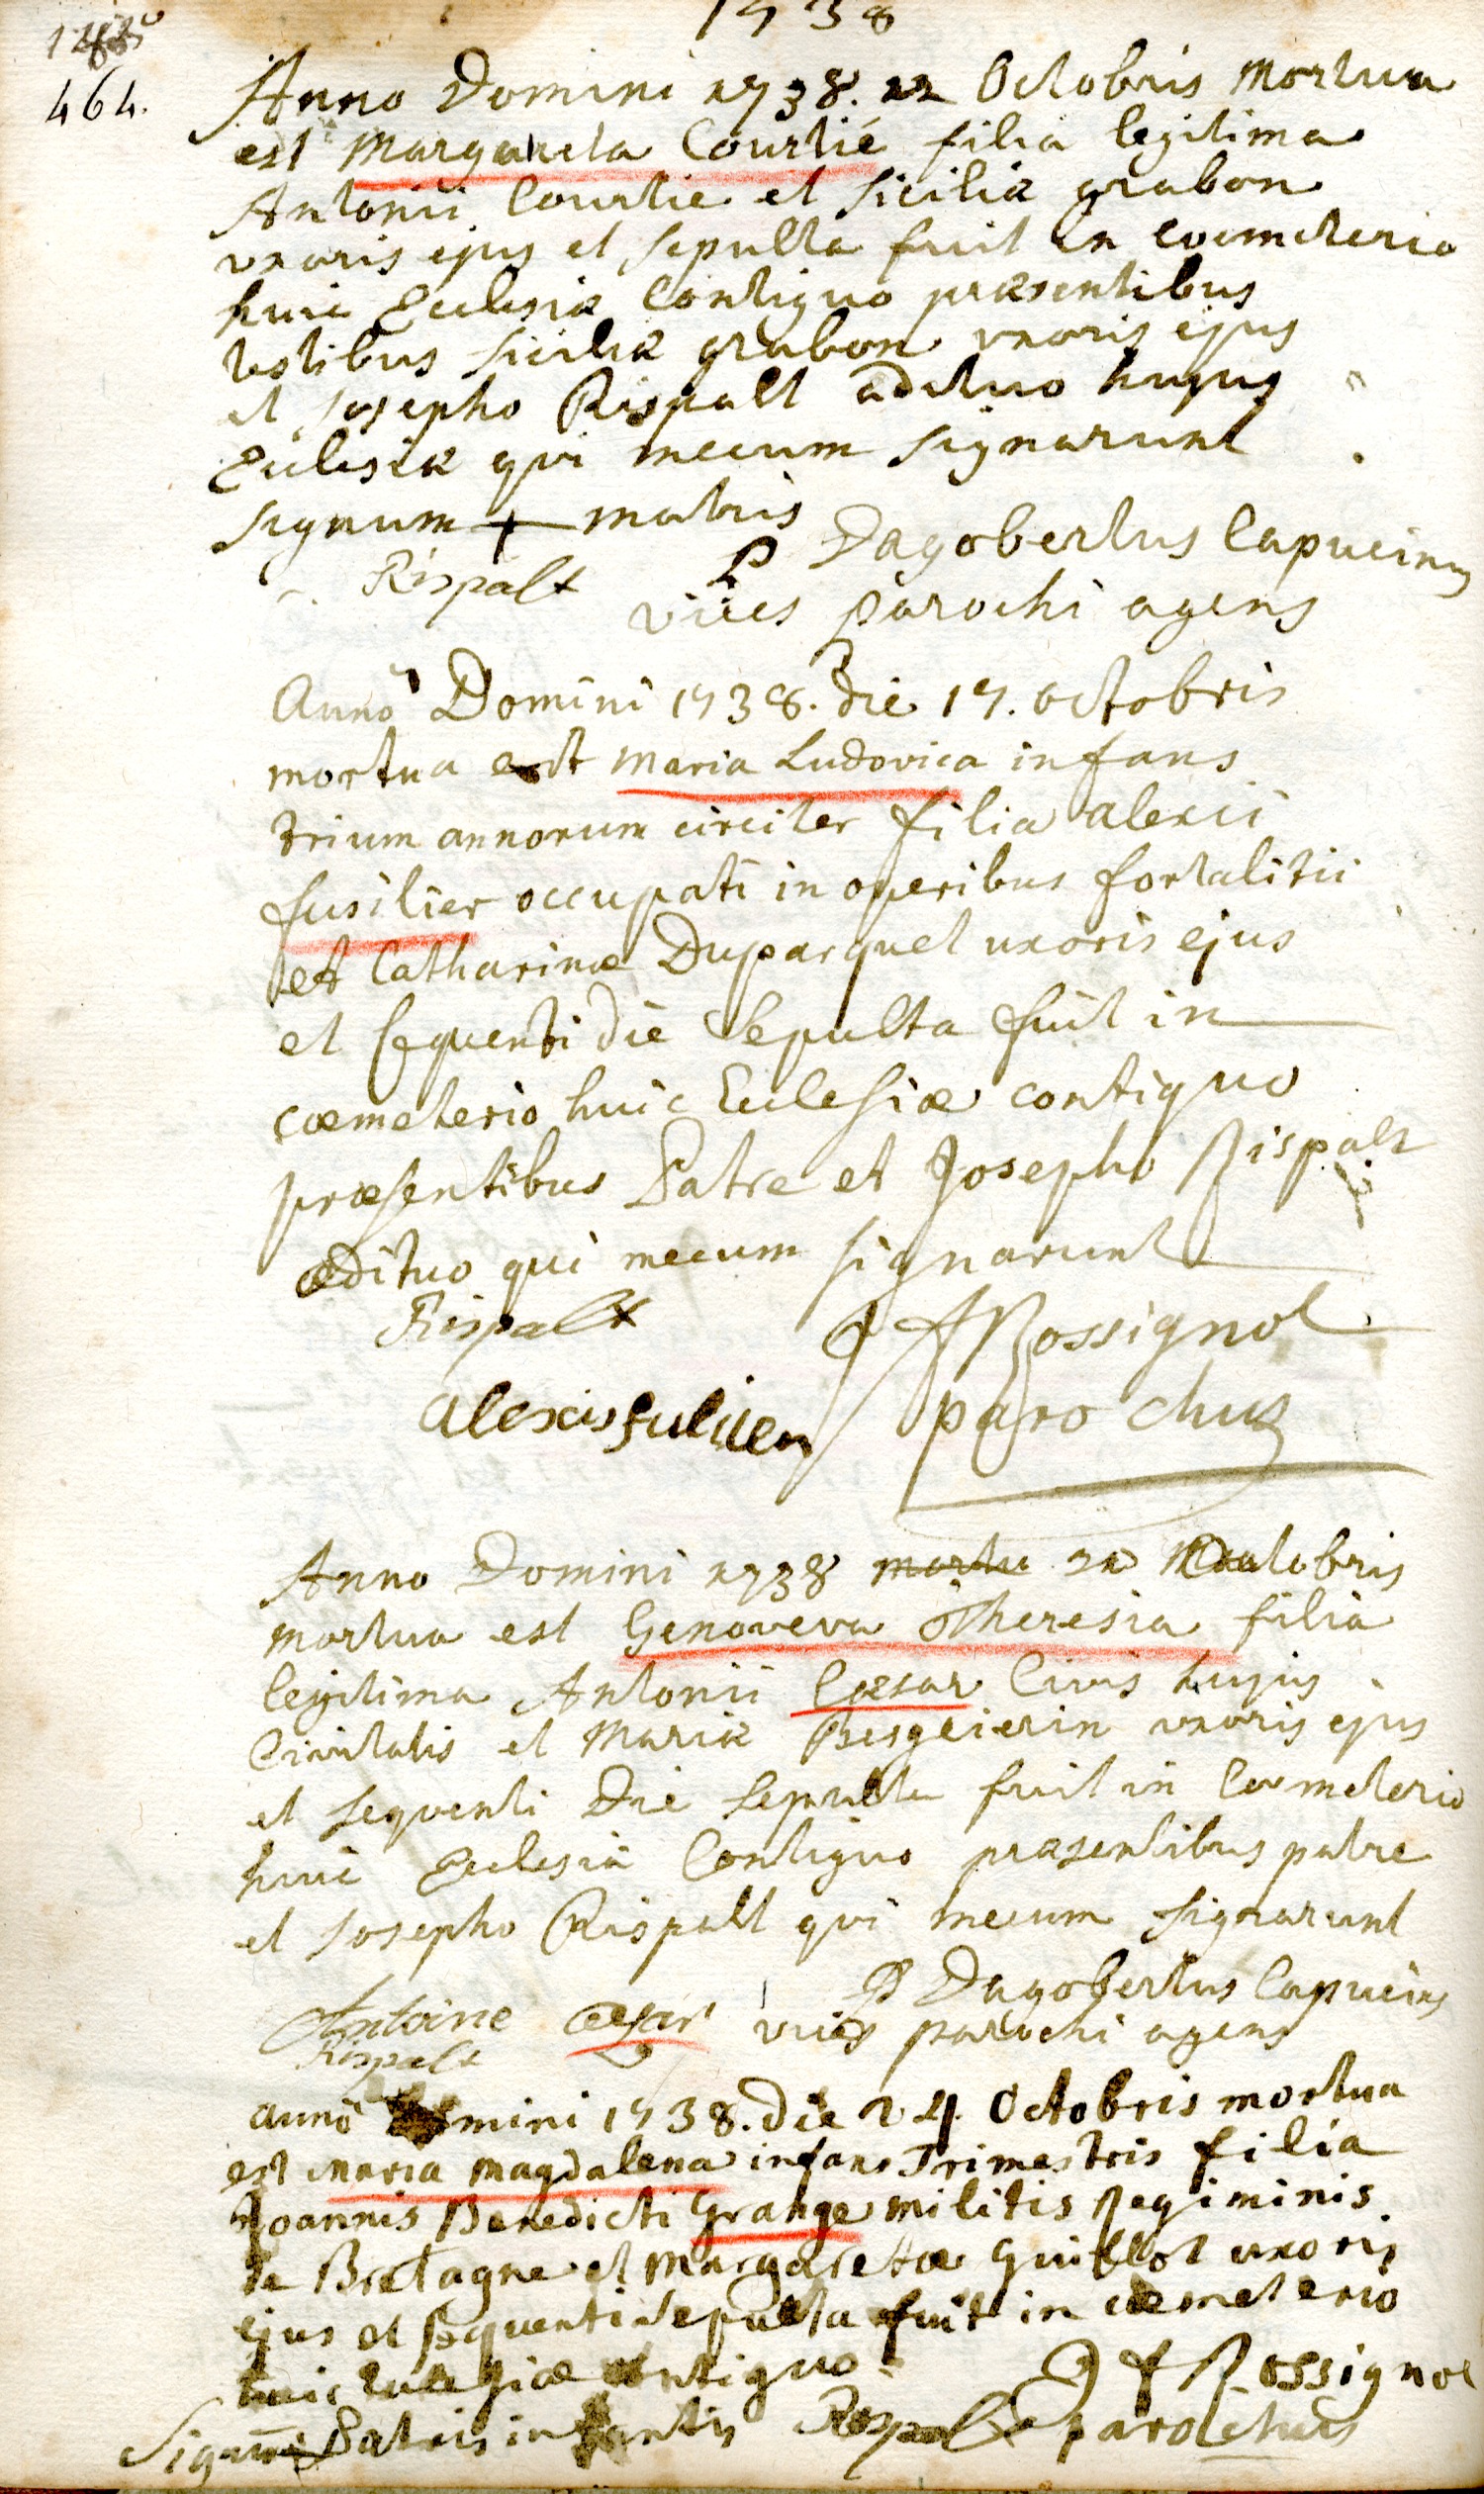 1738
464.
Anno Domini 1738. 22 Octobris mortua
est Margareta Courtié filia legitima
Antonii Courtie et Siciliæ grabon
uxoris ejus et sepulta fuit in Coemeterio
huic Ecclesiæ Contiguo præsentibus
testibus Siciliæ grabon uxoris ejus
et josepho Rispalt ædituo hujus
Ecclesiæ qui mecum signarunt
signum + matris
Rispalt P Dagobertus Capucinus
vices parochi agens
Anno Domini 1738. die 17. octobris
mortua est Maria Ludovica infans
trium annorum circiter filia alexii
fusilier occupati in operibus fortalitii
et Catharinæ Duparquet uxoris ejus
et sequenti die sepulta fuit in
cœmeterio huic Ecclesiæ contiguo
præsentibus Patre et Josepho Rispalt
ædituo qui mecum signarunt
Rispalt J f Rossignol
alexis fusilier parochus
Anno Domini 1738 mortu 22 Octobris
mortua est Genoveva Theresia filia
legitima Antonii Cæsar Civis hujus
Civitatis et Mariæ Besgeierin uxoris ejus
et sequenti Die sepulta fuit in Coemeterio
huic Ecclesiæ Contiguo præsentibus patre
et josepho Rispalt qui mecum signarunt
P Dagobertus Capucinus
Antoine Cesar vices parochi agens
Rispalt
anno Domini 1738. die 24 Octobris mortua
est Maria Magdalena infans Trimestris filia
Joannis Benedicti Grange militis Regiminis
de Bretagne et Margaretæ Guillot uxoris
ejus et sequenti sepulta fuit in cœmeterio
huic Ecclesiæ contiguo J f Rossignol
Signum + Patris infantis Rispalt parochus